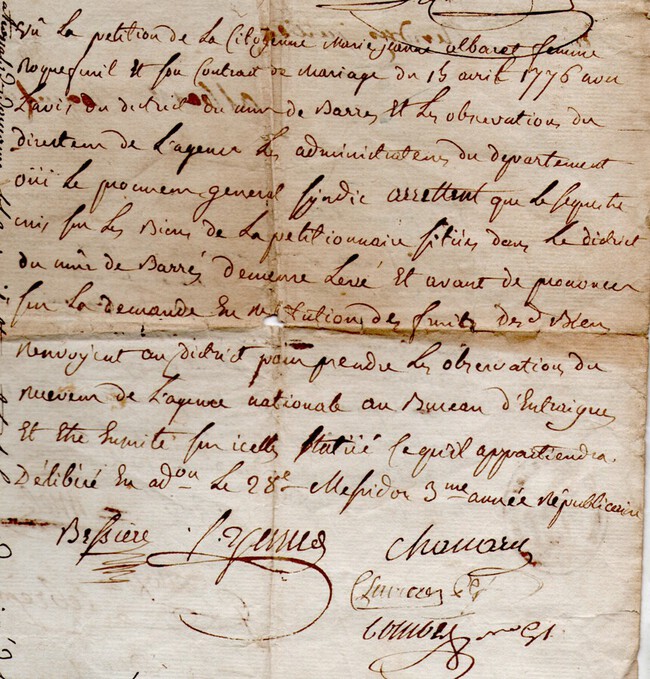 Vû la petition de la Citoyenne Marie jeanne albaret femme
Roquefeuil Et son Contrat de Mariage du 15 avril 1776 vou
L'avis du district du mur de Barres Et les observations du
directeur de L'agence Les administrateurs du departement
oüi Le procureur general syndic arrettent que Le sequestre
mis sur Les Biens de La petitionnaire situés dans Le district
du mûr de Barrés demeure Levé Et avant de prononcer
sur La demande En restitution des fruits desd Biens
Renvoyent au district pour prendre Les observations du
Receveur de L'agence nationale au Bureau d'Entraigues
Et Etre Ensuite sur icelles statüé Ce qu'il appartiendra
Délibéré En adon Le 28e Messidor 3me année Républicaine
Bessiere